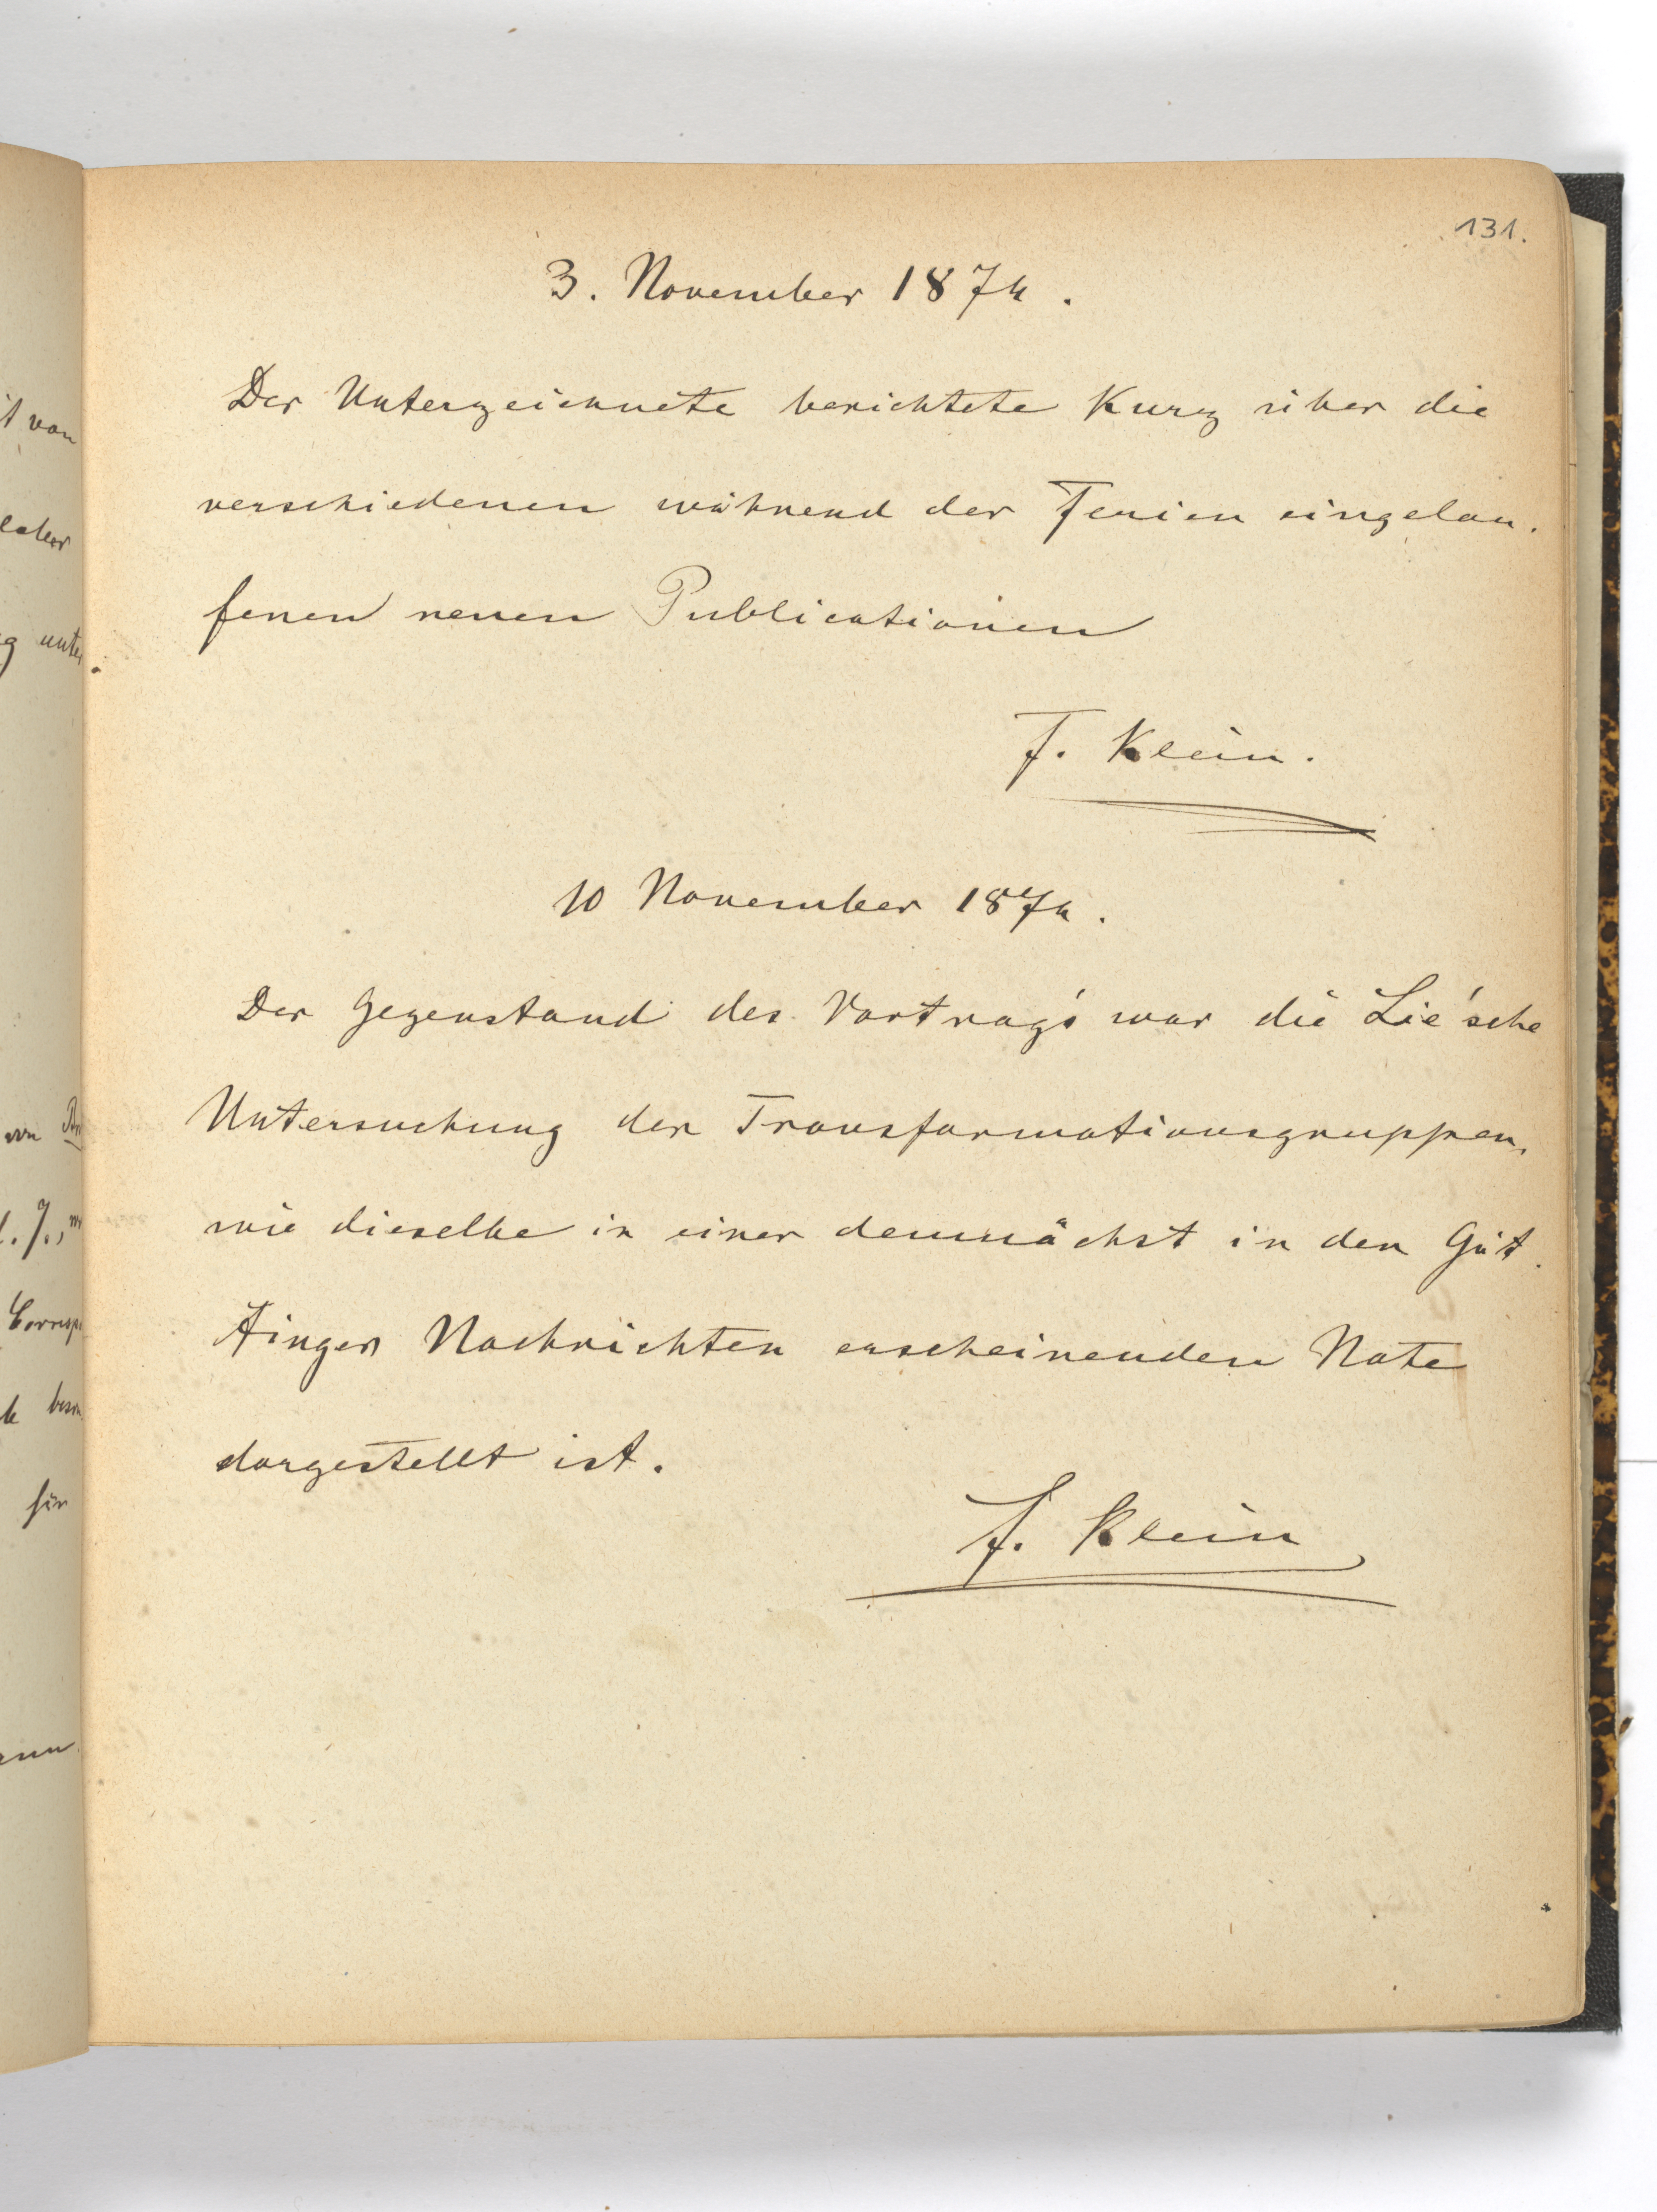 131.
3. November 1874.
Der Unterzeichnete berichtete Kurz über die
verschiedenen während der Ferien eingelau-
fenen neuen Publicationen
F. Klein.
10 November 1874.
Der Gegenstand des Vortrag's war die Lie'sche
Untersuchung der Transformationsgruppen,
wie dieselbe in einer demnächst in den Göt-
tinger Nachrichten erscheinenden Note
dargestellt ist.
F. Klein
t von
g unter
für